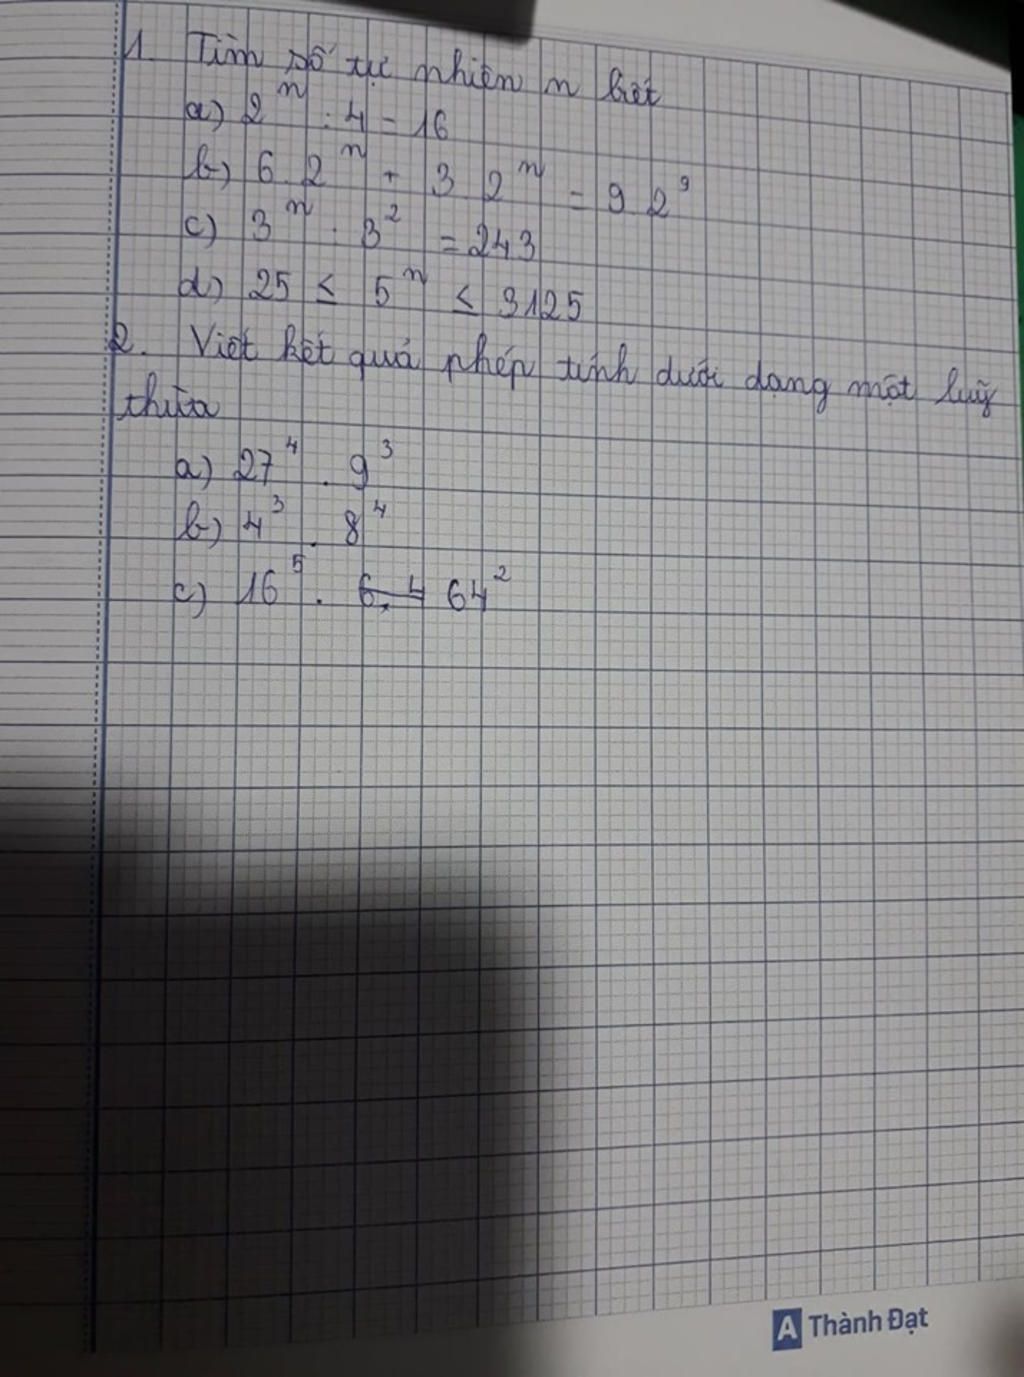 1. Tìm số tự nhiên n biết
a) 2ⁿ : 4 = 16
b) 6 2ⁿ + 3 2ⁿ = 9 2⁹
c) 3ⁿ : 3² = 243
d) 25 ≤ 5ⁿ ≤ 3125
2. Viết kết quả phép tính dưới dạng một luỹ
thừa
a) 27⁴ . 9³
b) 4³ . 8⁴
c) 16⁵ . 64²
A Thành Đạt